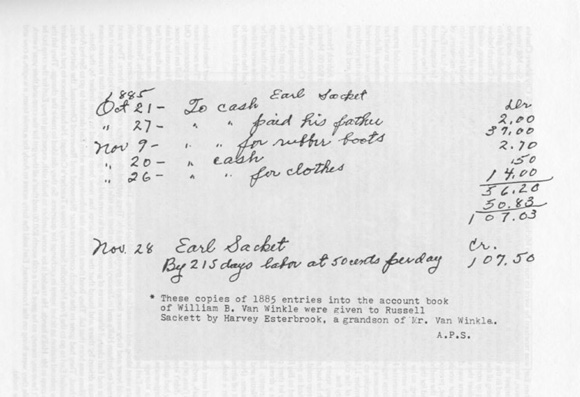 1885 Earl Sacket Dr
Oct 21 - To cash 2.00
" 27 - " " paid his father 37.00
Nov 9 - " " for rubber boots 2.70
" 20 - " cash .50
" 26 - " " for clothes 14.00
56.20
50.83
107.03
Nov. 28 Earl Sacket Cr.
By 215 days labor at 50 cents per day 107.50
* These copies of 1885 entries into the account book
of William B. Van Winkle were given to Russell
Sackett by Harvey Esterbrook, a grandson of Mr. Van Winkle.
A.P.S.